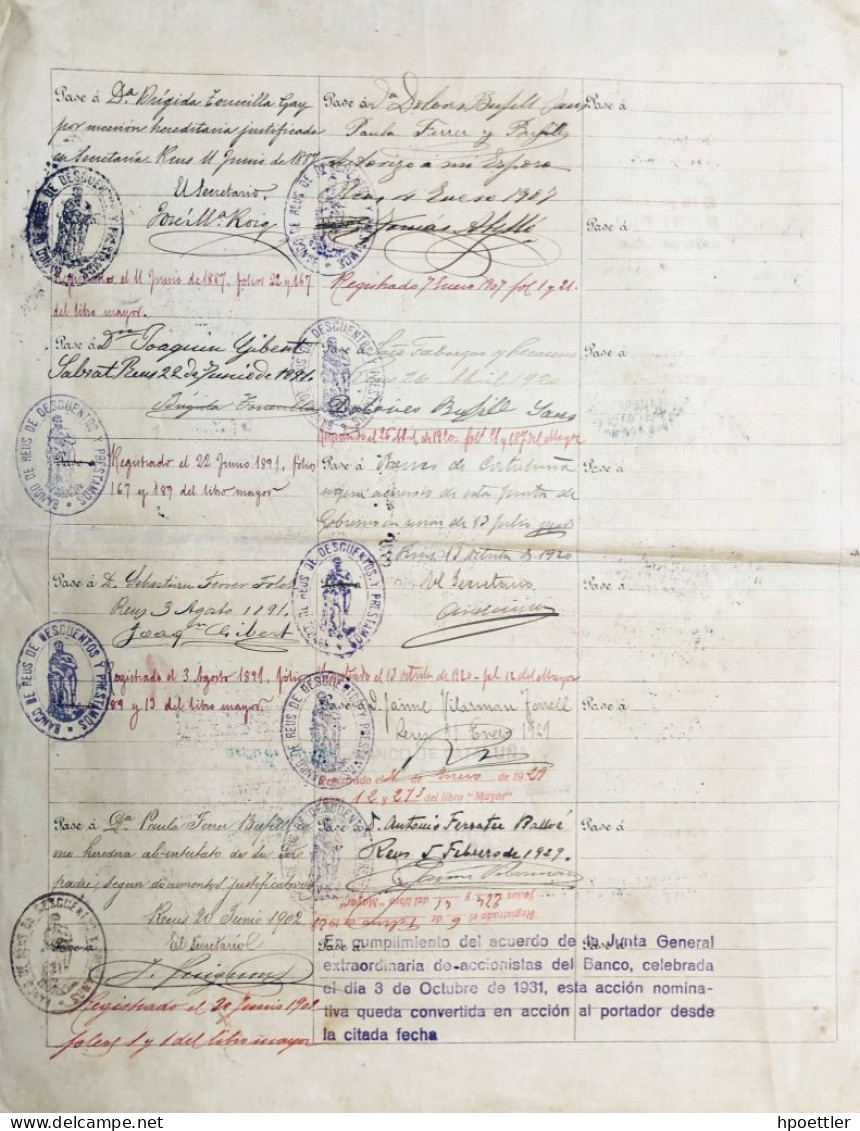 Pase á Dª Brígida Tornilla Gay
por sucesión hereditaria justificada
en Secretaría. Reus 11 Junio de 1887
El Secretario,
José Mª Roig
BANCO DE REUS DE DESCUENTOS Y PRÉSTAMOS
Registrado el 11 Junio de 1887. folios 22 y 167
del libro mayor.
Pase á Dn Joaquin Gibert
Sabrat Reus 22 de Junio de 1891.
Brígida
BANCO DE REUS DE DESCUENTOS Y PRÉSTAMOS
Pase á
Registrado el 22 Junio 1891. folios
167 y 189 del libro mayor.
Pase á D. Sebastian Ferrer
Reus 3 Agosto 1891.
Joaqn Gibert
BANCO DE REUS DE DESCUENTOS Y PRÉSTAMOS
Registrado el 3 Agosto 1891. folios
189 y 13 del libro mayor.
Pase á Dª Paula Ferrer Bufill
mo heredera ab-intestato de su
padre, segun documentos justificativos
Reus 20 Junio 1902
El Secretario
BANCO DE REUS DE DESCUENTOS Y PRÉSTAMOS
Pase á
Registrado el 20 Junio 1902
folios 1 y 1 del libro mayor
Pase á Dª Dolores Bufill Sans
Paula Ferrer y Bufill
Autorizo á mi Esposa
Reus 4 Enero 1907
Tomás
BANCO DE REUS DE DESCUENTOS Y PRÉSTAMOS
Registrado 7 Enero 1907 fol 1 y 21.
Pase á
26 Abril 1920
Dolores Bufill Sans
BANCO DE REUS DE DESCUENTOS Y PRÉSTAMOS
Registrado el 26 Abril de 1920 fol. 21 y 107 del Mayor
Pase á Banco de Cataluña
segun acuerdo de esta Junta de
Gobierno en sesion de 12 Julio
Reus 12 Octubre de 1920
Pase á
El Secretario
BANCO DE REUS DE DESCUENTOS Y PRÉSTAMOS
Registrado el 12 Octubre de 1920 - fol 12 del Mayor
Pase á D. Jaime Vilarman Forrell
Reus 31 Enero 1929
BANCO DE CATALUÑA
BANCO DE REUS DE DESCUENTOS Y PRÉSTAMOS
Registrado el 31 de Enero de 1929
12 y 273 del libro "Mayor"
Pase á D. Antonio Ferrater Balloé
Reus 5 Febrero de 1929.
Jaime Vilarman
BANCO DE REUS DE DESCUENTOS Y PRÉSTAMOS
Registrado el 6 de Febrero de 1929
del libro "Mayor"
Pase á
En cumplimiento del acuerdo de la Junta General
extraordinaria de accionistas del Banco, celebrada
el día 3 de Octubre de 1931, esta acción nomina-
tiva queda convertida en acción al portador desde
la citada fecha
Pase á
Pase á
Pase á
Pase á
Pase á
Pase á
Pase á
Pase á
hpoettler